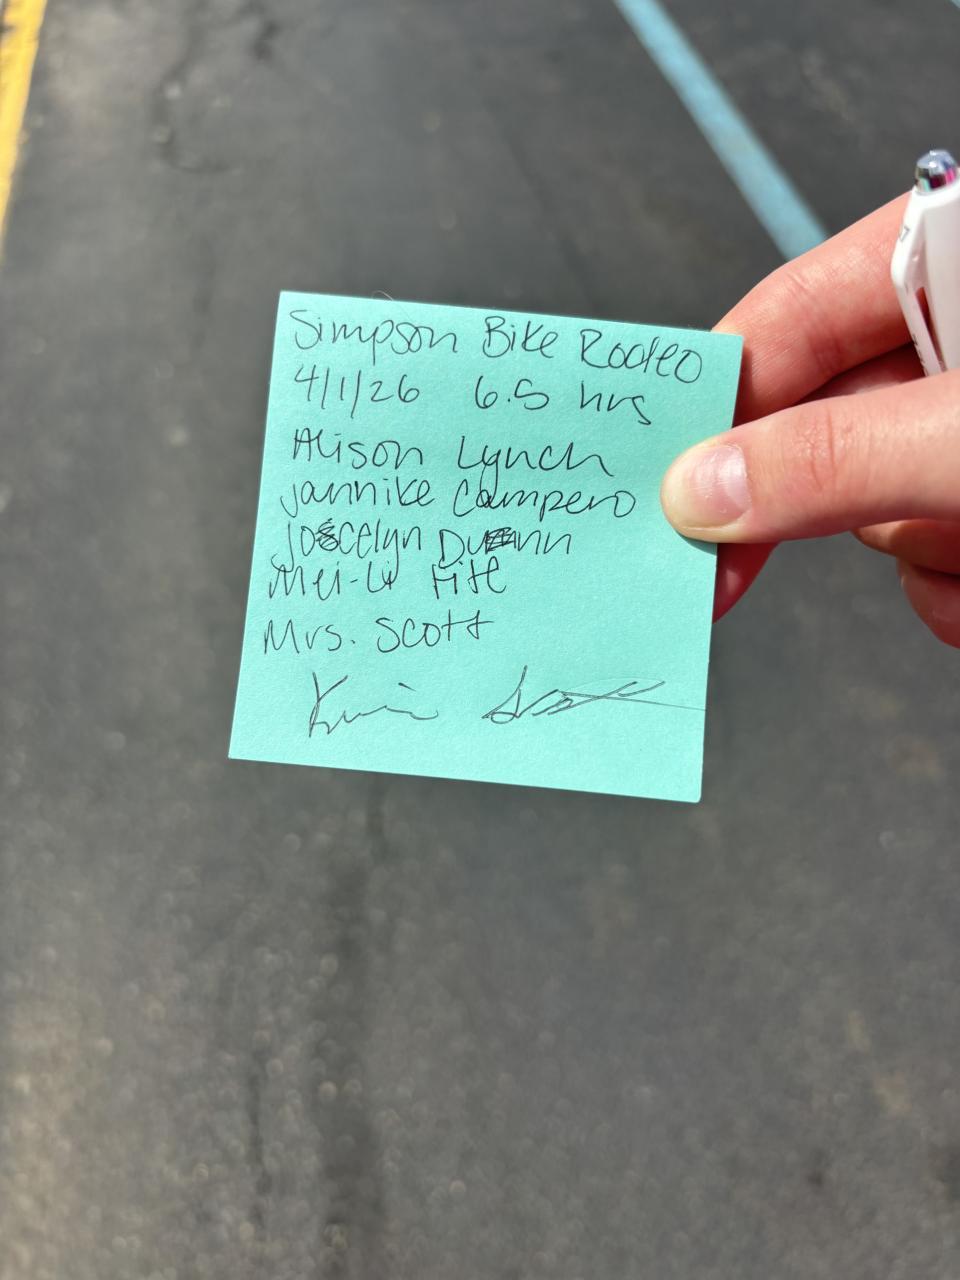 Simpson Bike Rodeo
4/1/26 6.5 hrs
Alison Lynch
Jannike Campero
Joscelyn Dunn
Mei-Li Fite
Mrs. Scott
Scott